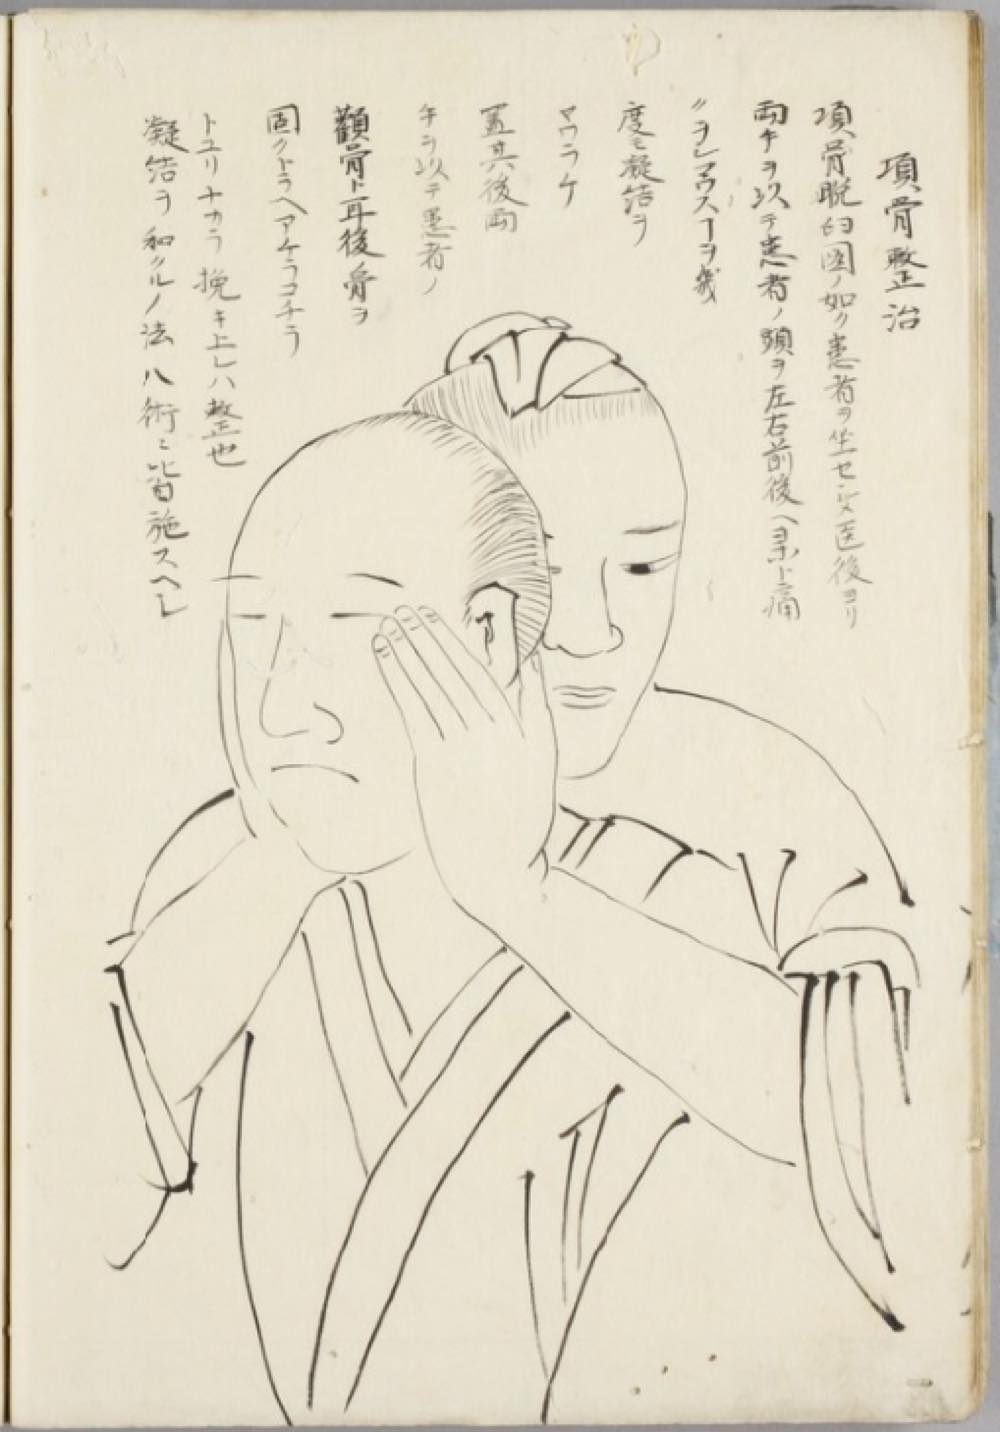 項骨整治
項骨脱臼図ノ如ク患者ヲ坐セシメ医後ヨリ
両手ヲ以テ患者ノ頭ヲ左右前後ヘ ト痛
ヲシマワスヿヲ幾
度モ凝結ヲ
ヤワラケ
置其後両
手ヲ以テ患者ノ
顴骨ト耳後骨ヲ
固クトラヘアチラコチラ
トユリナカラ挽キ上レハ整也
凝結ヲ和クルノ法八術ニ皆施スヘシ